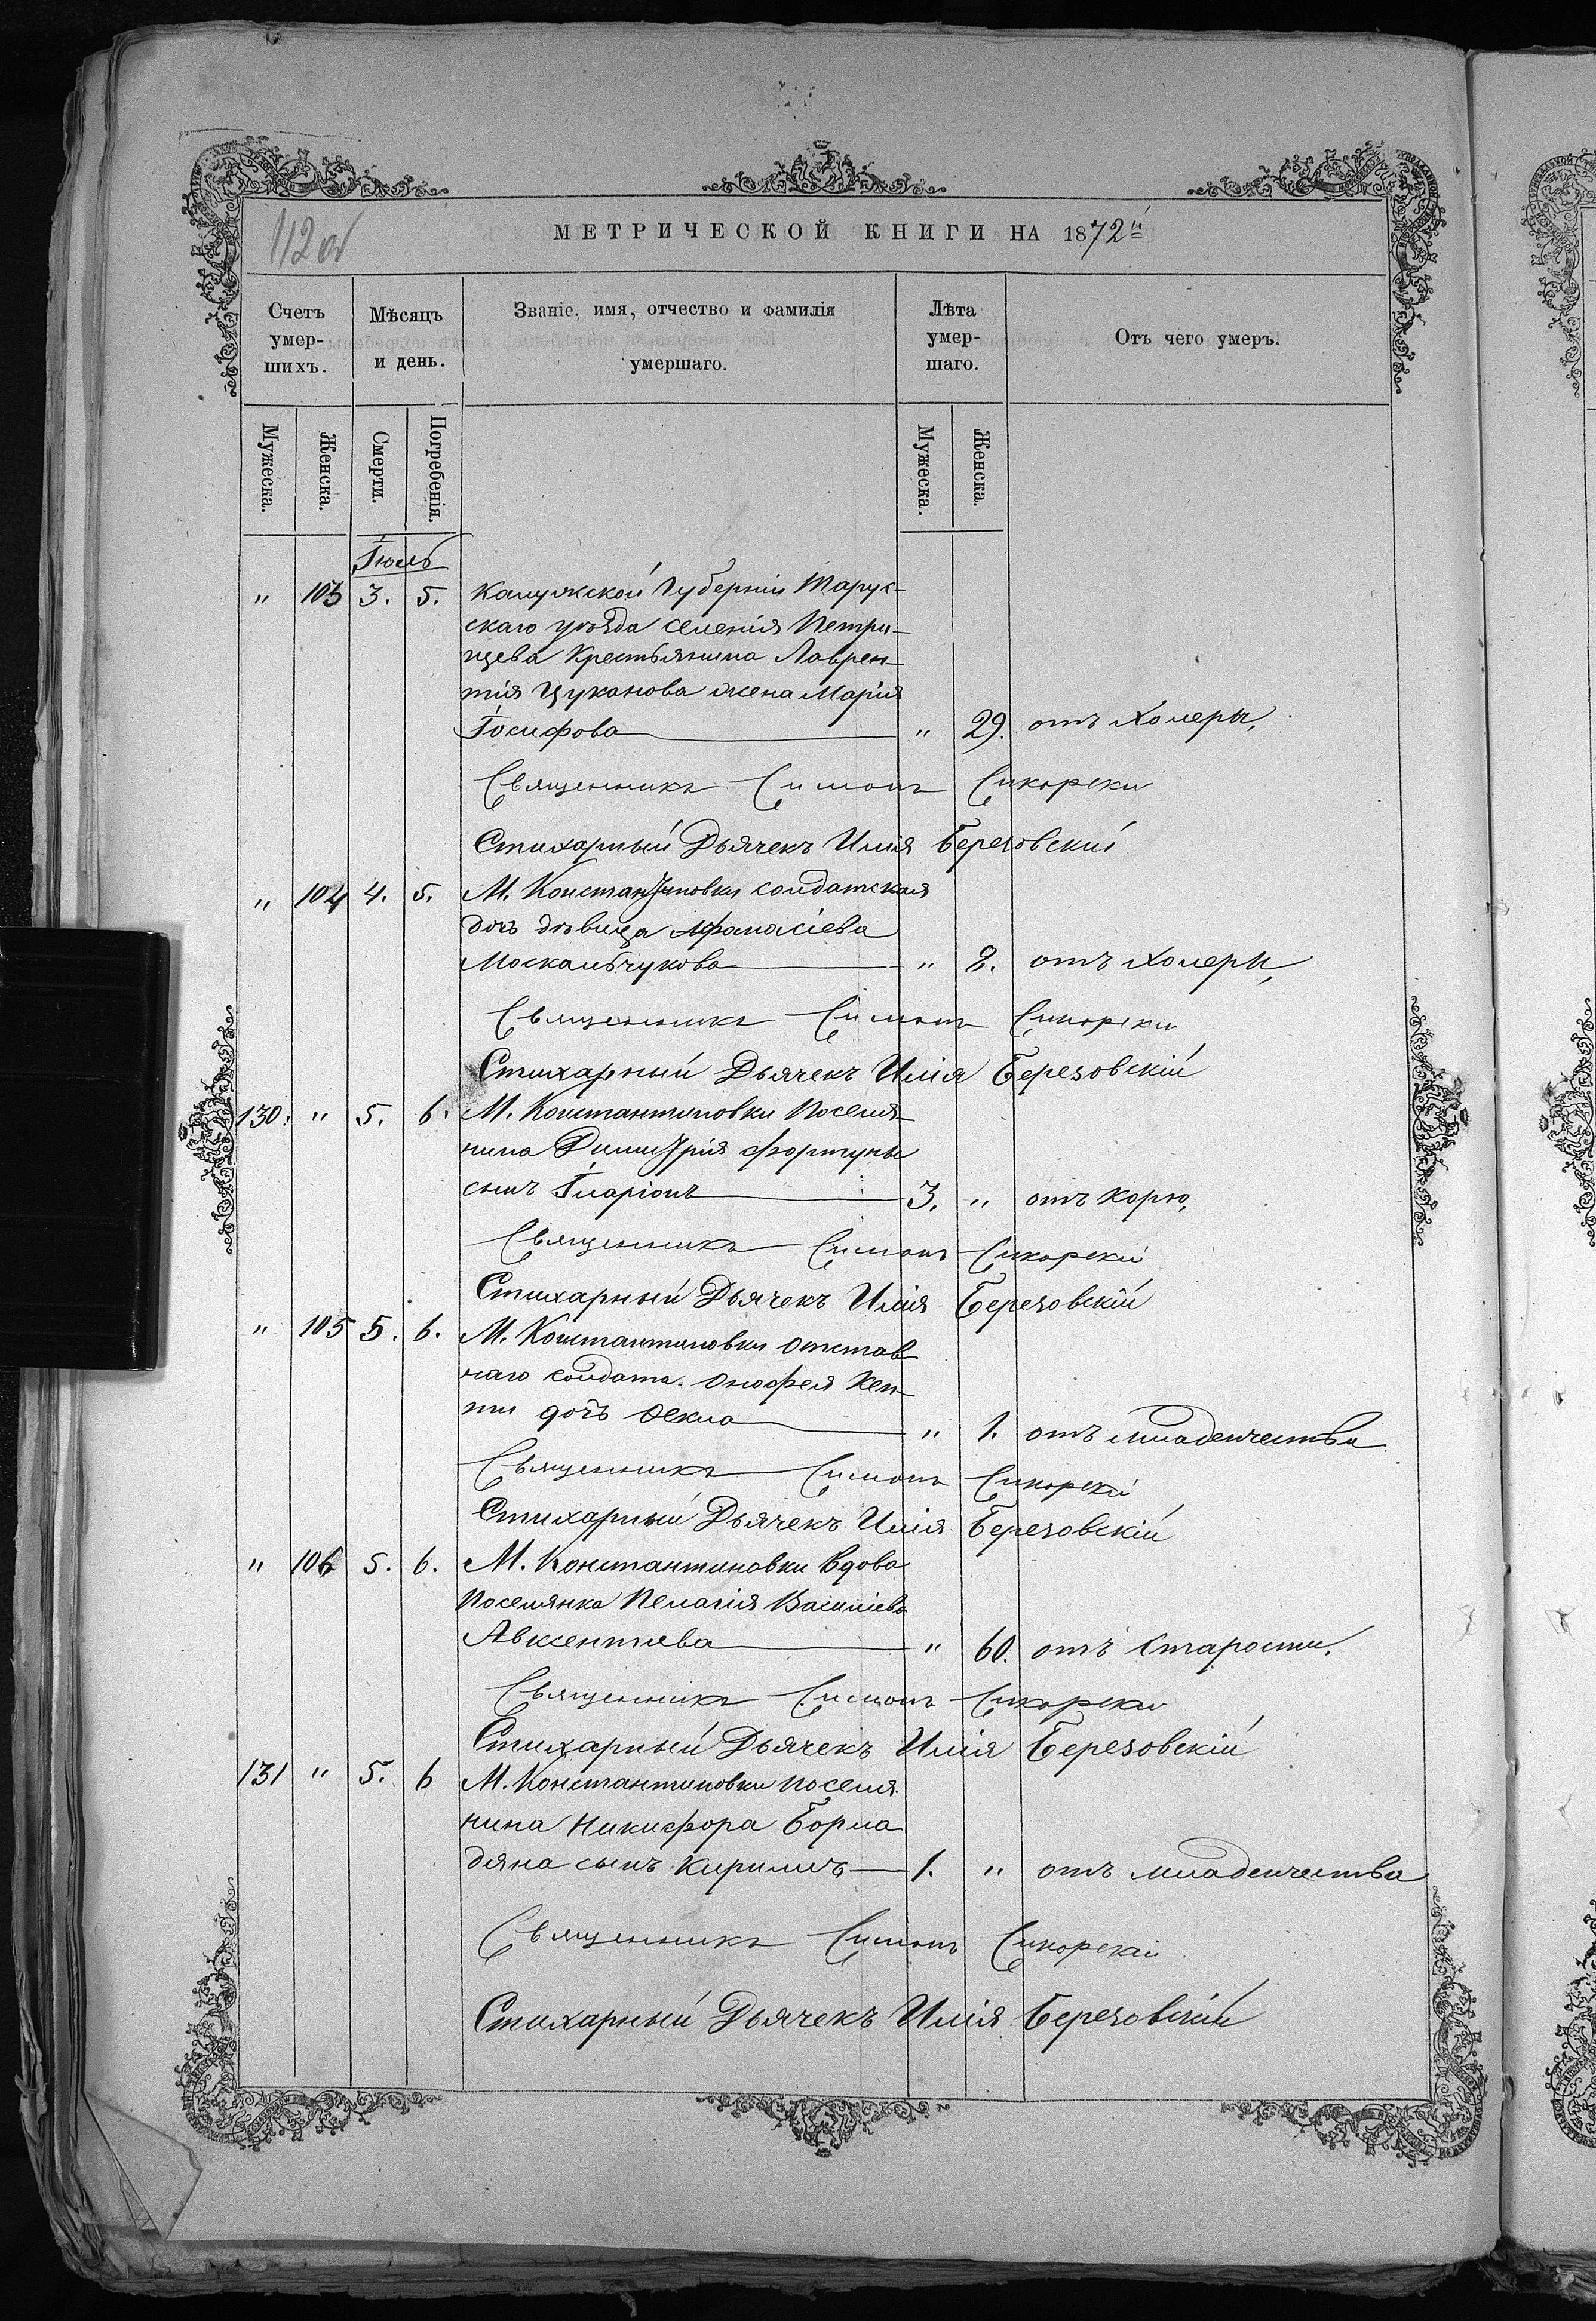 112 об
МЕТРИЧЕСКОЙ КНИГИ НА 1872й
Счетъ умер-шихъ.
Мѣсяцъ и день.
Званіе, имя, отчество и фамилія умершаго.
Лѣта умер-шаго.
Отъ чего умеръ.
Мужеска.
Женска.
Смерти.
Погребенія.
Мужеска.
Женска.
Іюль
" 103 3. 5. Калужской Губерніи Тарус-
скаго уѣзда селенія Петри-
щева Крестьянина Лаврен-
тія Цуканова жена Марія
Іосифова " 29. отъ холеры,
Священникъ Симонъ Сикорскій
Стихарный Дьячекъ Илія Березовскій
" 104 4. 5. М. Константиновки солдатская
дочь дѣвица Афанасіева
Москальчукова " 8. отъ холеры,
Священникъ Симонъ Сикорскій
Стихарный Дьячекъ Илія Березовскій
130. " 5. 6. М. Константиновки Поселя-
нина Димитрія Фортуны
сынъ Іларіонъ 3. " отъ корю,
Священникъ Симонъ Сикорскій
Стихарный Дьячекъ Илія Березовскій
" 105 5. 6. М. Константиновки отстав
наго солдата. Онофрея Кеп-
ти дочь Ѳекла " 1. отъ младенчества
Священникъ Симонъ Сикорскій
Стихарный Дьячекъ Илія Березовскій
" 106 5. 6. М. Константиновки Вдова
Поселянка Пелагія Василіева
Авксентиева " 60. отъ старости.
Священникъ Симонъ Сикорскій
Стихарный Дьячекъ Илія Березовскій
131 " 5. 6 М. Константиновки поселя
нина Никифора Борма
дяна сынъ Кирилъ 1. " отъ младенчества
Священникъ Симонъ Сикорскій
Стихарный Дьячекъ Илія Березовскій